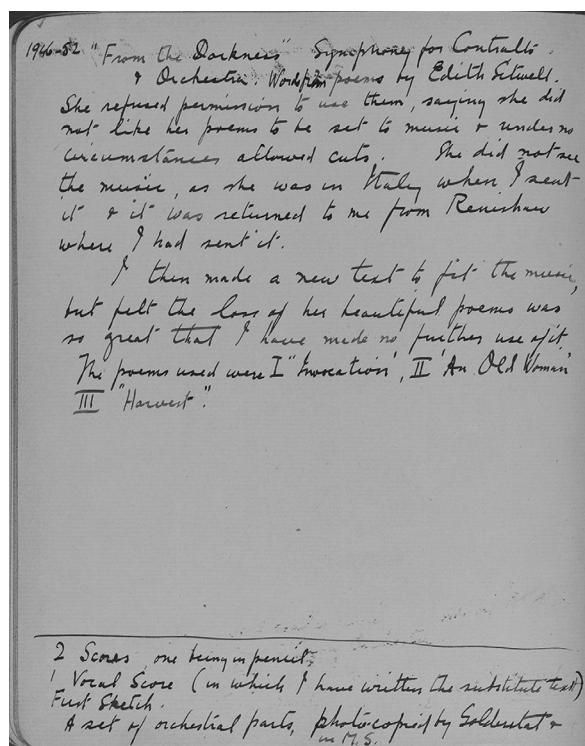 1946-52 "From the Darkness" Symphony for Contralto
& Orchestra. Words from poems by Edith Sitwell.
She refused permission to use them, saying she did
not like her poems to be set to music & under no
circumstances allowed cuts. She did not see
the music, as she was in Italy when I sent
it & it was returned to me from Renishaw
where I had sent it.
I then made a new text to fit the music,
but felt the loss of her beautiful poems was
so great that I have made no further use of it.
The poems used were I "Invocation", II 'An Old Woman'
III "Harvest".
2 Scores, one being in pencil.
1 Vocal Score (in which I have written the substitute text)
First Sketch.
A set of orchestral parts, photocopied by Goldenstat &
in M.S.